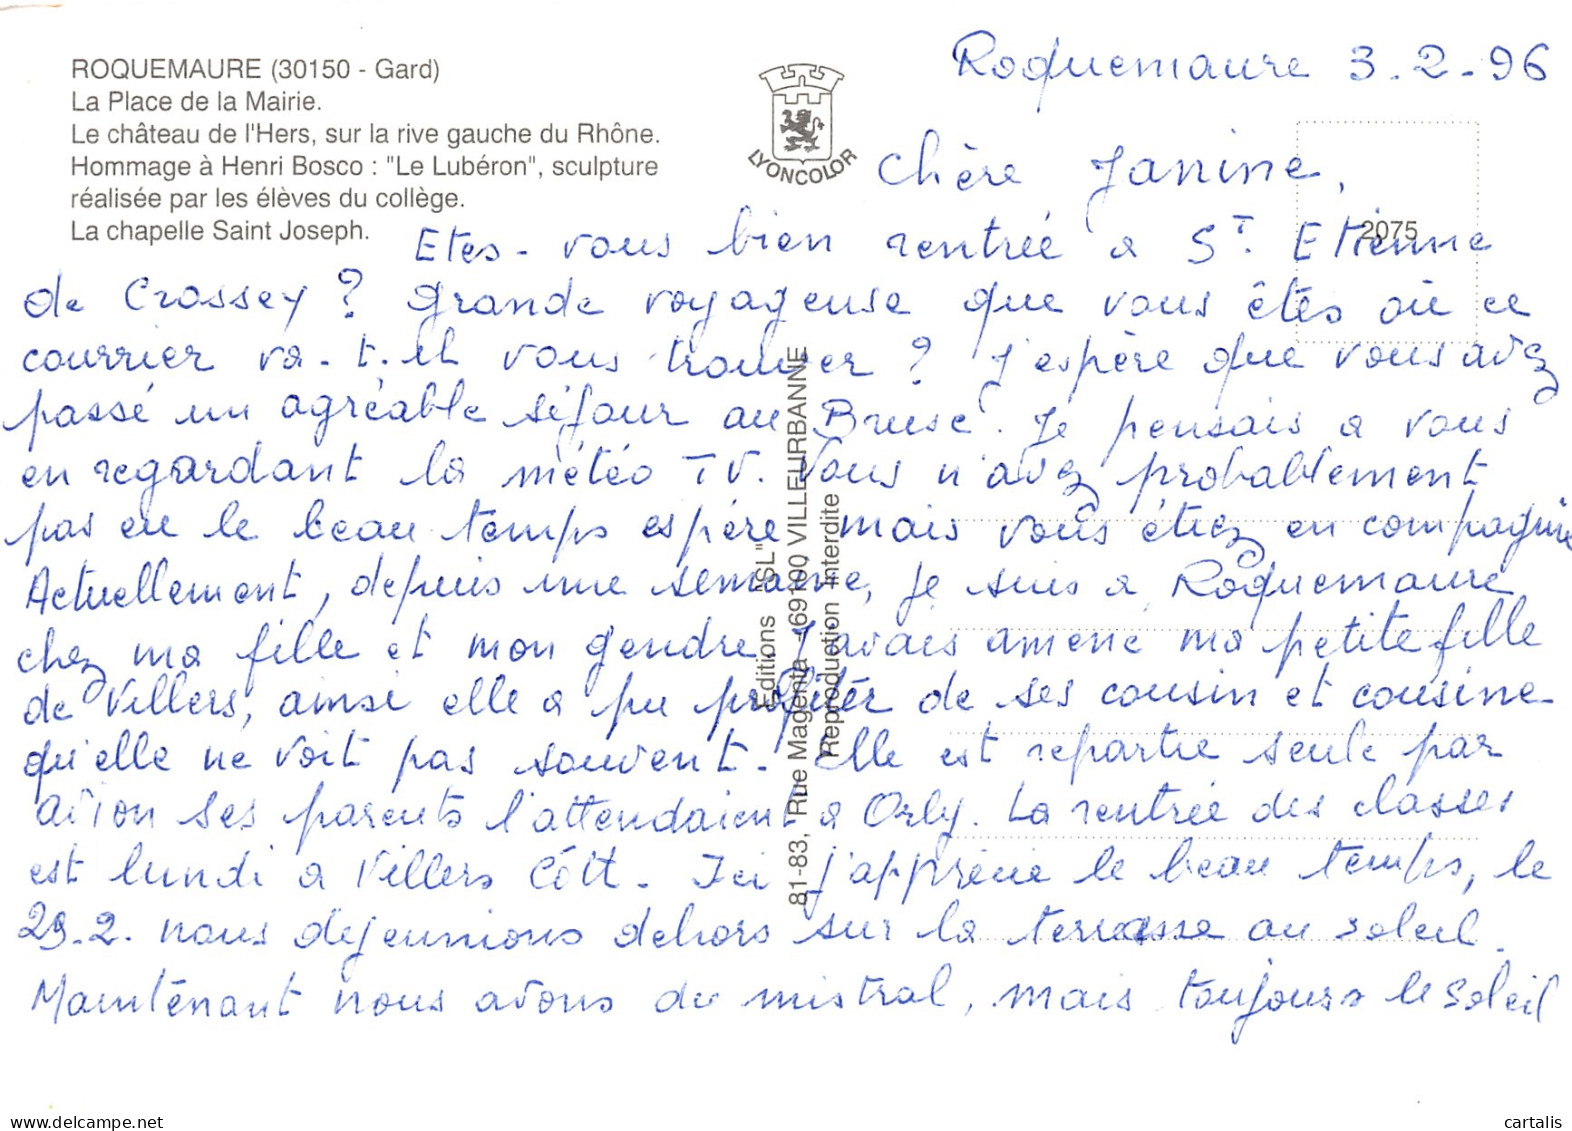 ROQUEMAURE (30150 - Gard)
La Place de la Mairie.
Le château de l'Hers, sur la rive gauche du Rhône.
Hommage à Henri Bosco : "Le Lubéron", sculpture
réalisée par les élèves du collège.
La chapelle Saint Joseph.
LYONCOLOR
2075
Editions "SL"
81-83, Rue Magenta - 69100 VILLEURBANNE
Reproduction Interdite
Roquemaure 3.2.96
Chère Janine,
Etes-vous bien rentrée a St. Etienne
de Crossey ? Grande voyageuse que vous êtes où ce
courrier va-t-il vous trouver ? J'espère que vous avez
passé un agréable séjour au Brusc. Je pensais a vous
en regardant la météo TV. Vous n'avez probablement
pas eu le beau temps espéré mais vous étiez en compagnie
Actuellement, depuis une semaine, je suis a Roquemaure
chez ma fille et mon gendre j'avais amené ma petite fille
de Villers, ainsi elle a pu profiter de ses cousin et cousine
qu'elle ne voit pas souvent. Elle est repartie seule par
avion ses parents l'attendaient a Orly. La rentrée des classes
est lundi a Villers Côtt. Ici j'apprécie le beau temps, le
29.2. nous déjeunions dehors sur la terrasse au soleil.
Maintenant nous avons du mistral, mais toujours le soleil
cartalis
www.delcampe.net